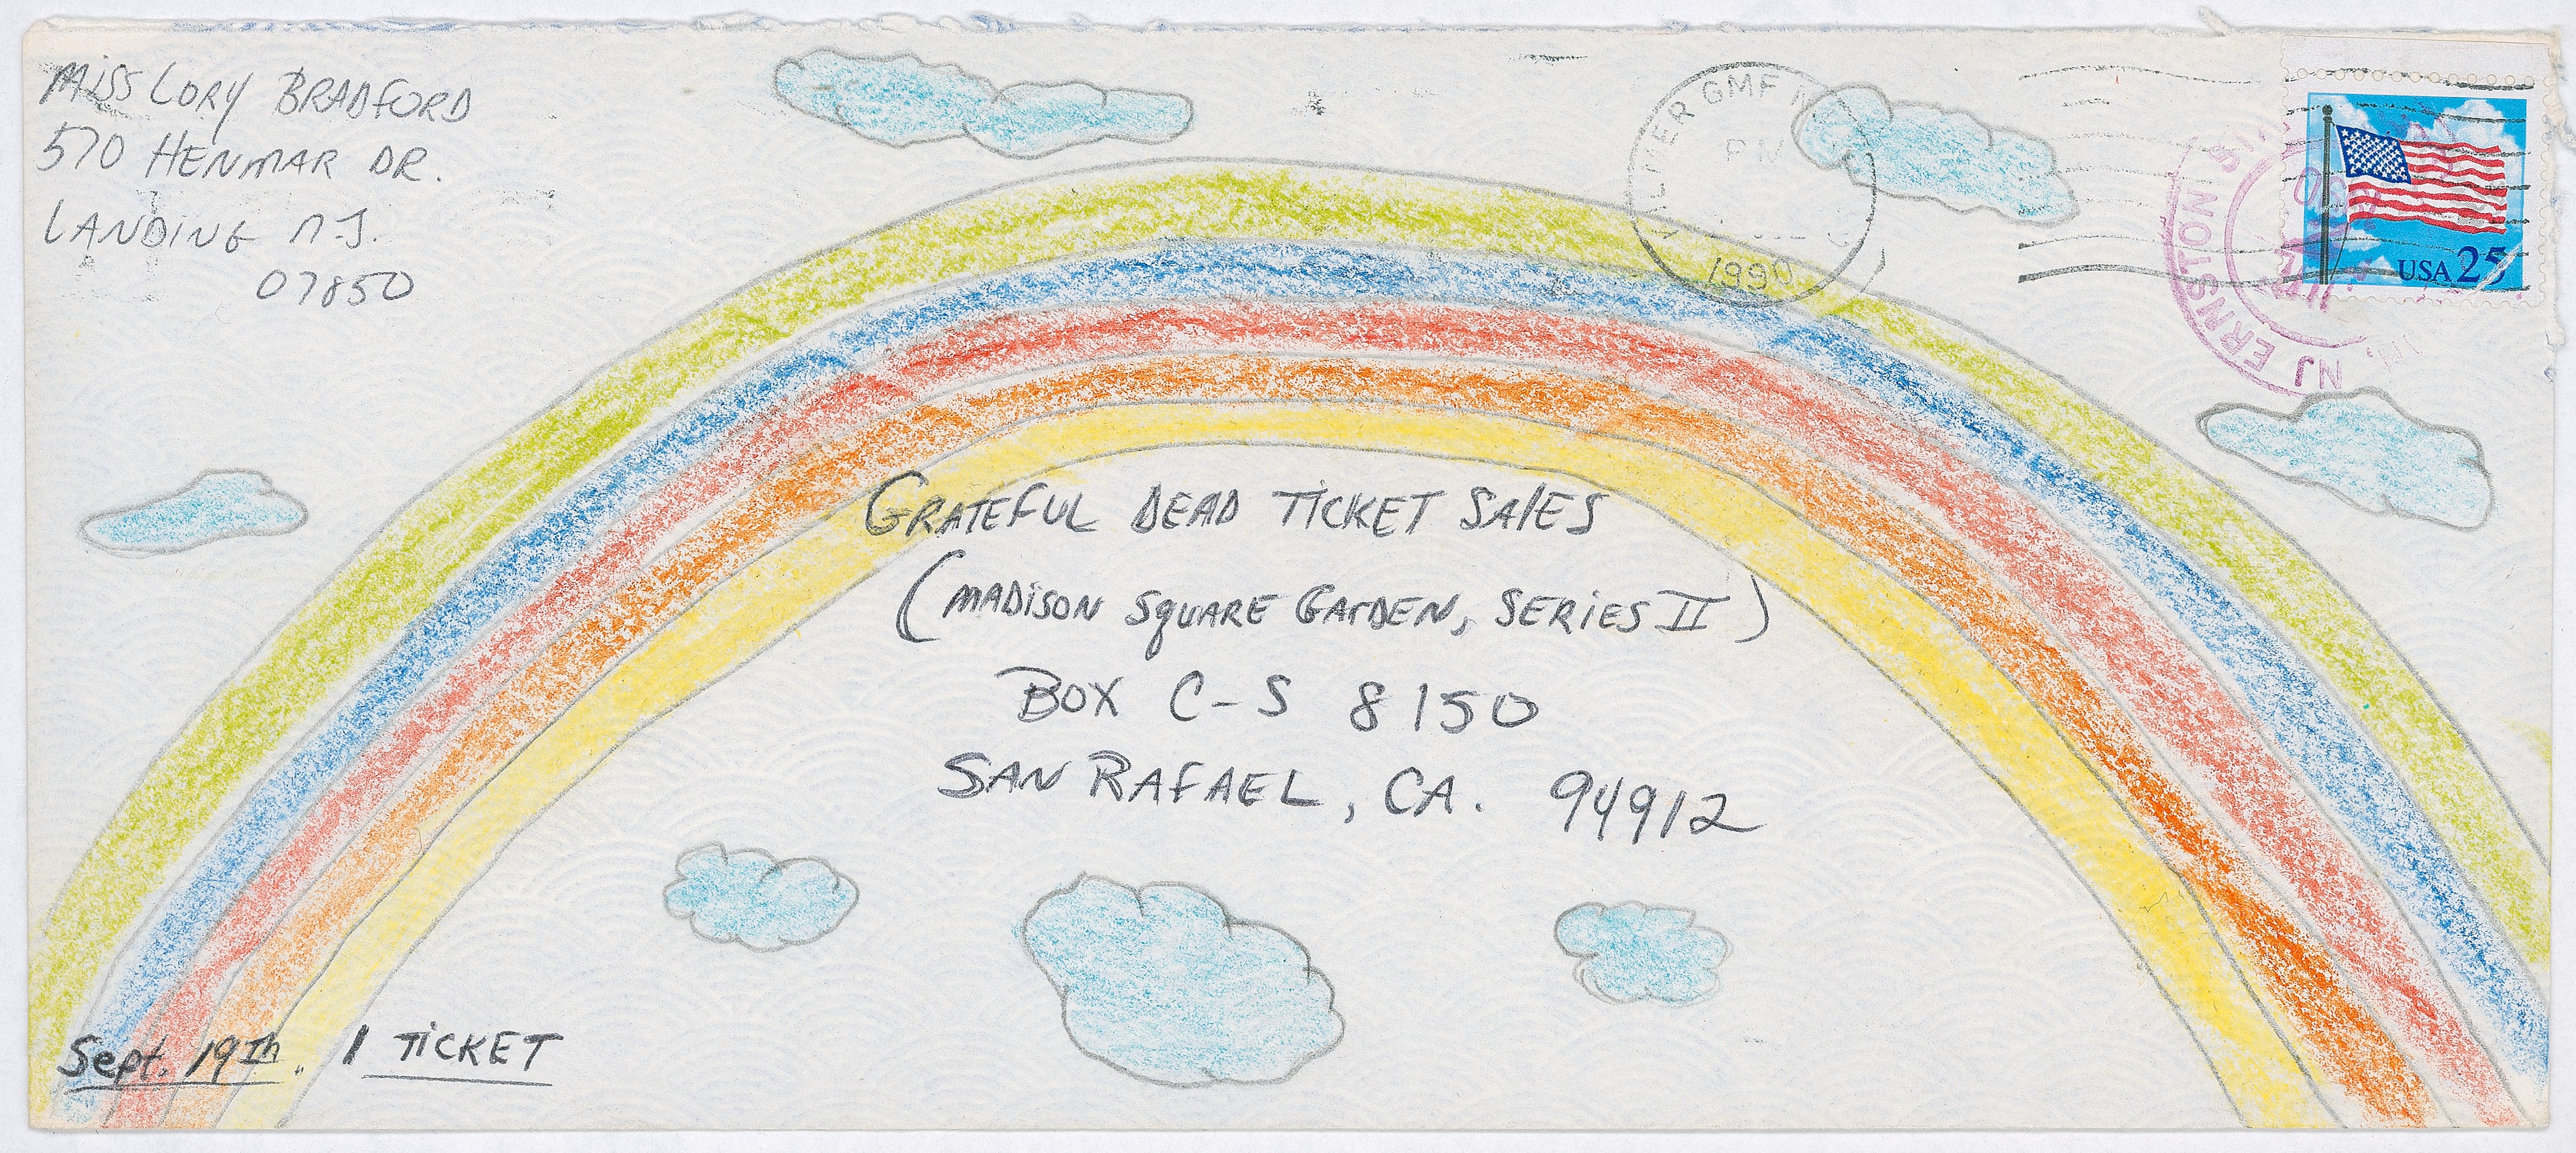 Miss Lory Bradford
570 Henmar Dr.
Landing N.J.
07850
GMF
1990
USA 25
NJ ERNSTON
Grateful Dead Ticket Sales
(Madison Square Garden, Series II)
Box C-S 8150
San Rafael, CA. 94912
Sept. 19th. 1 Ticket